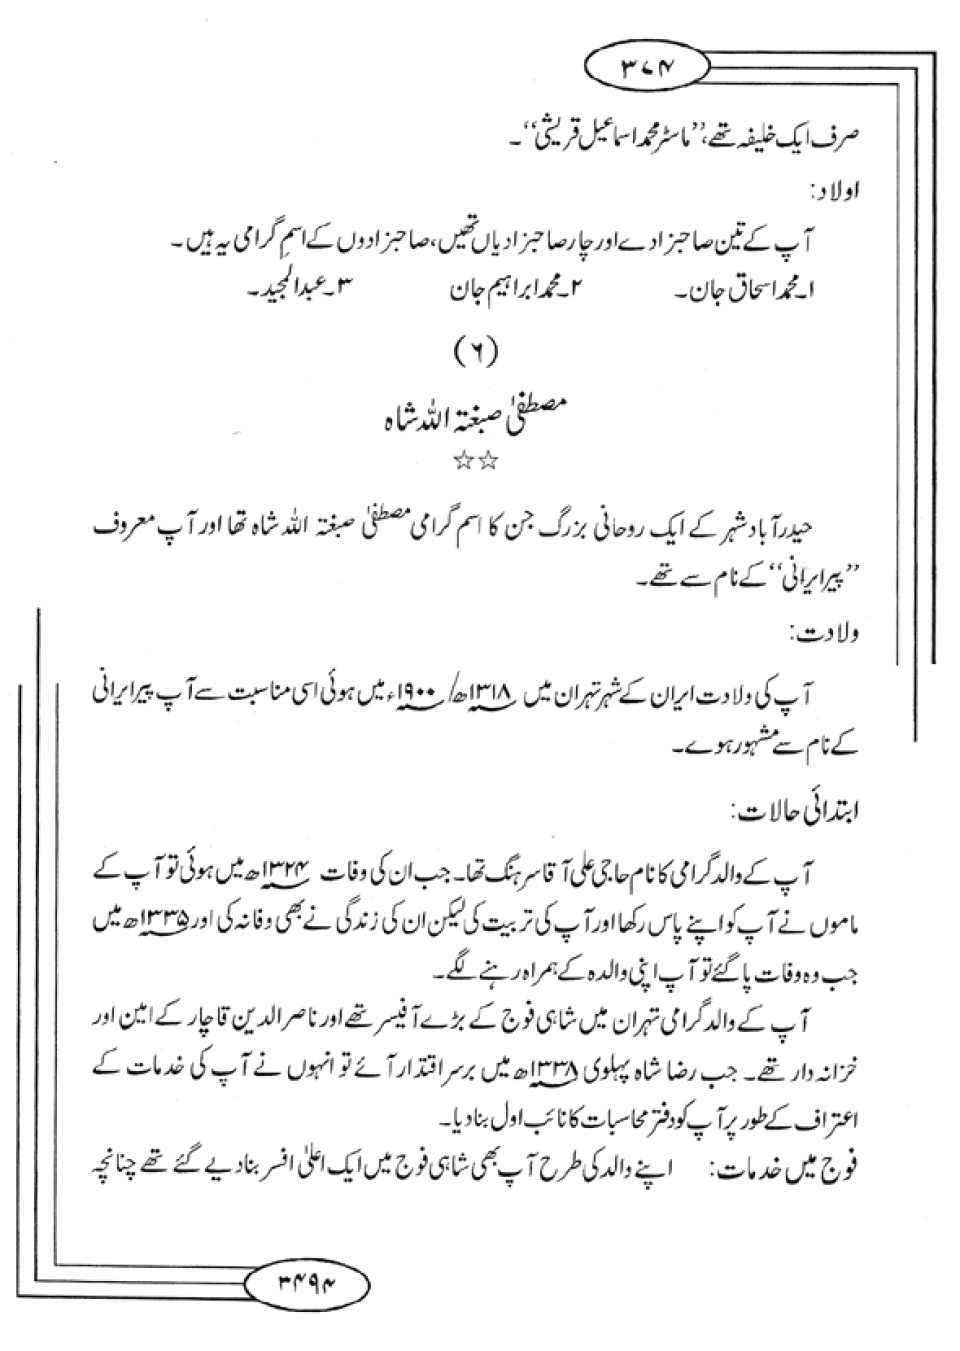 ۳۷۴
صرف ایک خلیفہ تھے، ’’ماسٹر محمد اسماعیل قریشی‘‘۔
اولاد:
آپ کے تین صاحبزادے اور چار صاحبزادیاں تھیں، صاحبزادوں کے اسمِ گرامی یہ ہیں۔
۱۔محمد اسحاق جان۔ ۲۔محمد ابراہیم جان ۳۔عبدالمجید۔
(۶)
مصطفیٰ صبغۃ اللہ شاہ
☆☆
حیدرآباد شہر کے ایک روحانی بزرگ جن کا اسم گرامی مصطفیٰ صبغۃ اللہ شاہ تھا اور آپ معروف
’’پیر ایرانی‘‘ کے نام سے تھے۔
ولادت:
آپ کی ولادت ایران کے شہر تہران میں ۱۳۱۸ھ/۱۹۰۰ء میں ہوئی اسی مناسبت سے آپ پیر ایرانی
کے نام سے مشہور ہوے۔
ابتدائی حالات:
آپ کے والد گرامی کا نام حاجی علی آقا سرہنگ تھا۔ جب ان کی وفات ۱۳۲۴ھ میں ہوئی تو آپ کے
ماموں نے آپ کو اپنے پاس رکھا اور آپ کی تربیت کی لیکن ان کی زندگی نے بھی وفا نہ کی اور ۱۳۳۵ھ میں
جب وہ وفات پا گئے تو آپ اپنی والدہ کے ہمراہ رہنے لگے۔
آپ کے والد گرامی تہران میں شاہی فوج کے بڑے آفیسر تھے اور ناصر الدین قاچار کے امین اور
خزانہ دار تھے۔ جب رضا شاہ پہلوی ۱۳۳۸ھ میں برسر اقتدار آئے تو انہوں نے آپ کی خدمات کے
اعتراف کے طور پر آپ کو دفتر محاسبات کا نائب اول بنادیا۔
فوج میں خدمات: اپنے والد کی طرح آپ بھی شاہی فوج میں ایک اعلیٰ افسر بنا دیے گئے تھے چنانچہ
۳۴۹۴